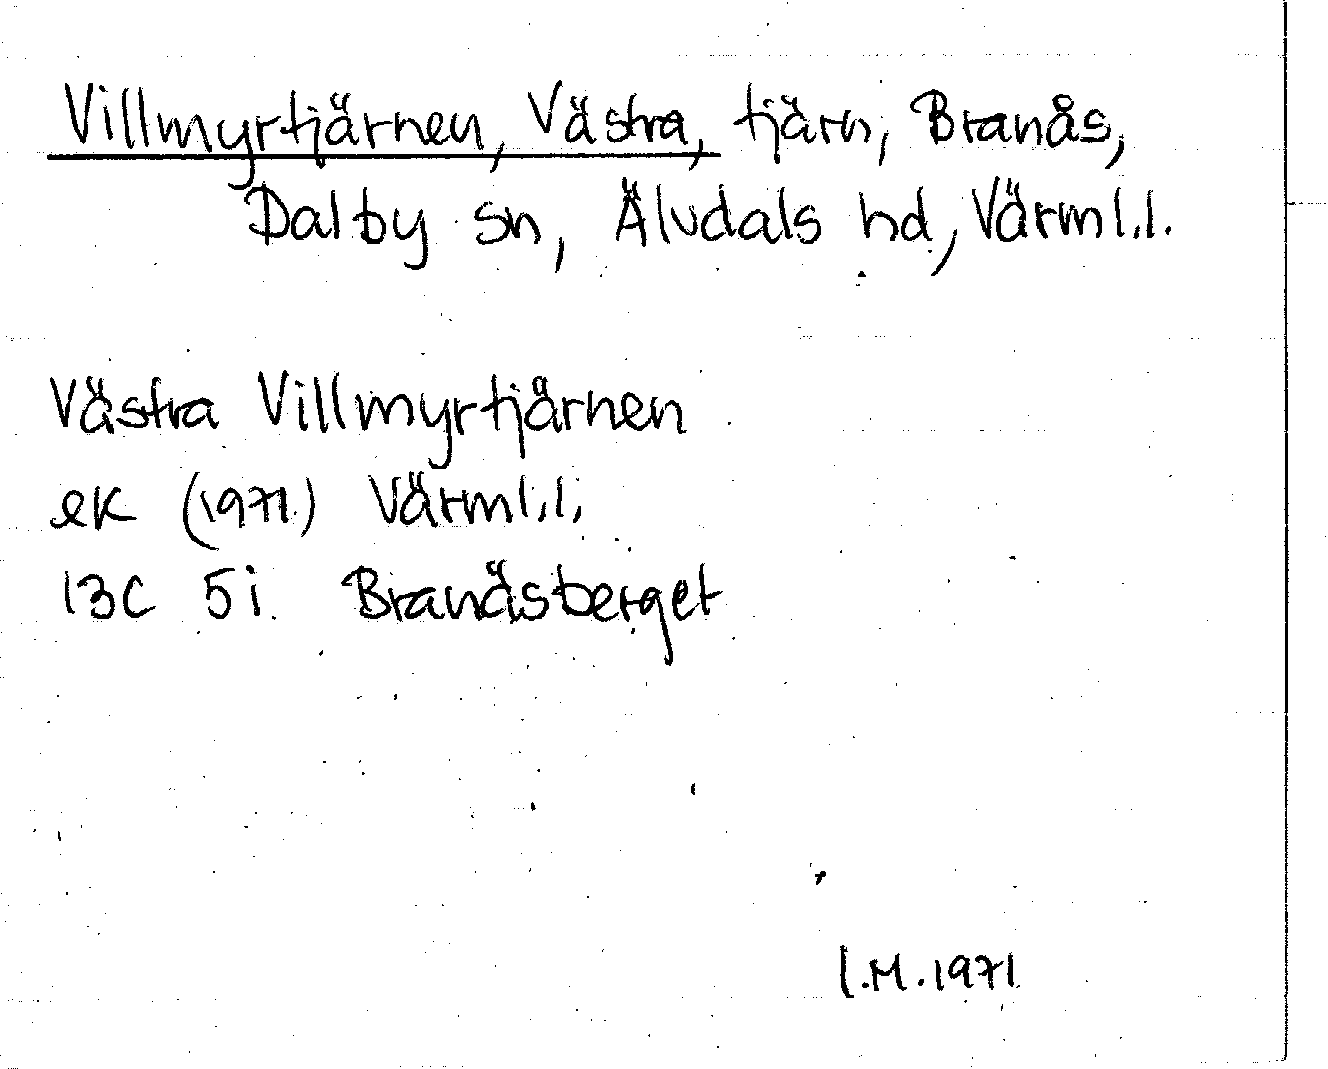 Villmyrtjärnen, Västra, tjärn, Branås,
Dalby sn, Älvdals hd, Värml.l.
Västra Villmyrtjärnen
ek (1971) Värml.l.
13C 5i Branäsberget
l.M.1971